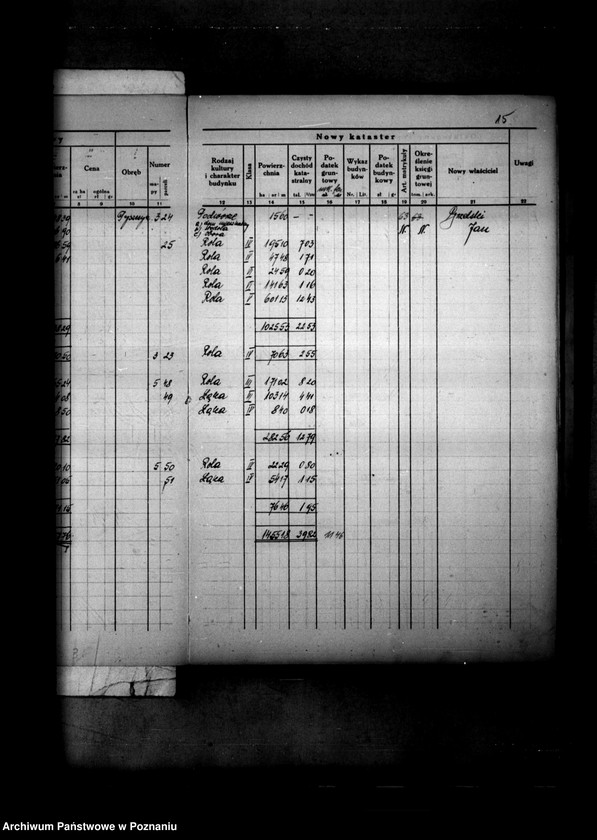 15
Nowy kataster
Cena
Obręb
Numer
Rodzaj kultury i charakter budynku
Klasa
Powierzchnia
Czysty dochód katastralny
Podatek gruntowy
Wykaz budynków
Podatek budynkowy
Art. matrykuły
Określenie księgi gruntowej
Nowy właściciel
Uwagi
ogólna
ha ar m
tal.
Nr. Lit.
zł gr
tom. ark.
8 9 10 11 12 13 14 15 16 17 18 19 20 21 22
3 24 Podwórze 1560 - -
Jan
25 Rola III 19510 703
Rola IV 4748 171
Rola 2459 020
Rola 14163 116
Rola V 60113 1243
102553 2253
3 23 Rola IV 7063 255
5 48 Rola III 17102 820
49 Łąka III 10314 441
Łąka IV 840 018
28256 1279
5 50 Rola III 2229 080
51 Łąka IV 5417 115
7646 195
145518 3982 1146
Archiwum Państwowe w Poznaniu